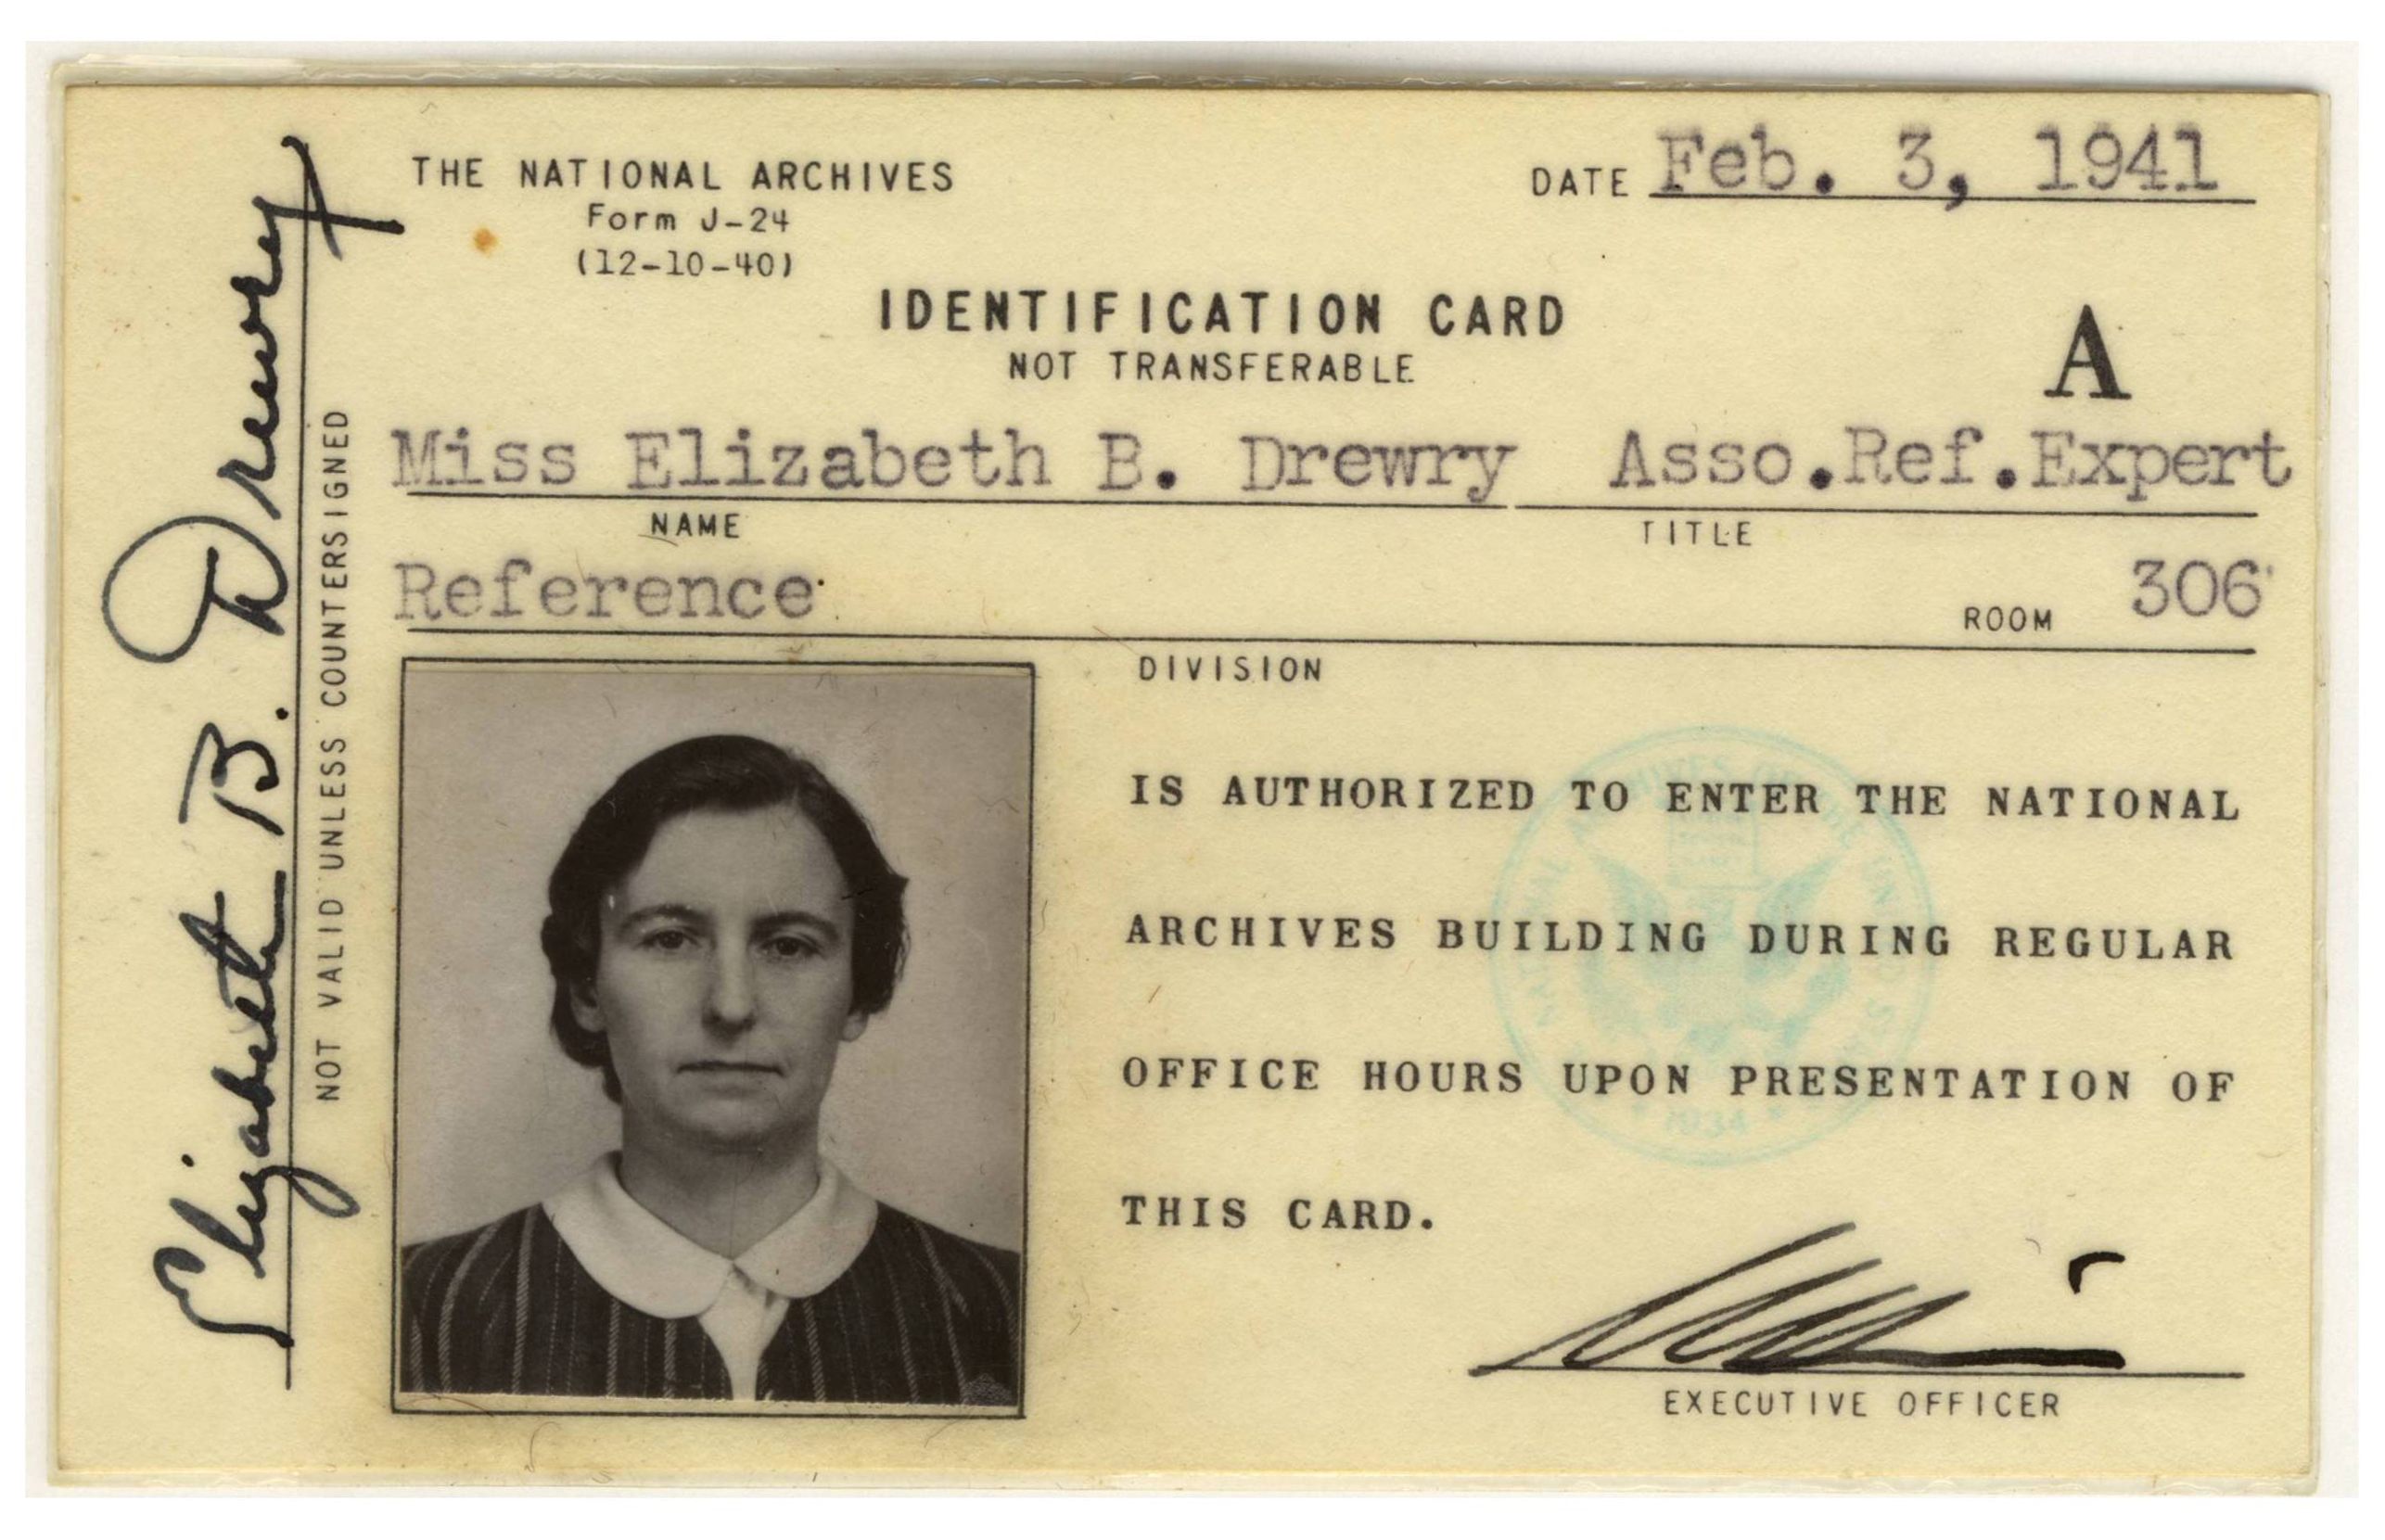 THE NATIONAL ARCHIVES
Form J-24
(12-10-40)
DATE Feb. 3, 1941
IDENTIFICATION CARD
NOT TRANSFERABLE
A
Miss Elizabeth B. Drewry Asso.Ref.Expert
NAME TITLE
Reference ROOM 306
DIVISION
IS AUTHORIZED TO ENTER THE NATIONAL
ARCHIVES BUILDING DURING REGULAR
OFFICE HOURS UPON PRESENTATION OF
THIS CARD.
EXECUTIVE OFFICER
Elizabeth B. Drewry
NOT VALID UNLESS COUNTERSIGNED
1934